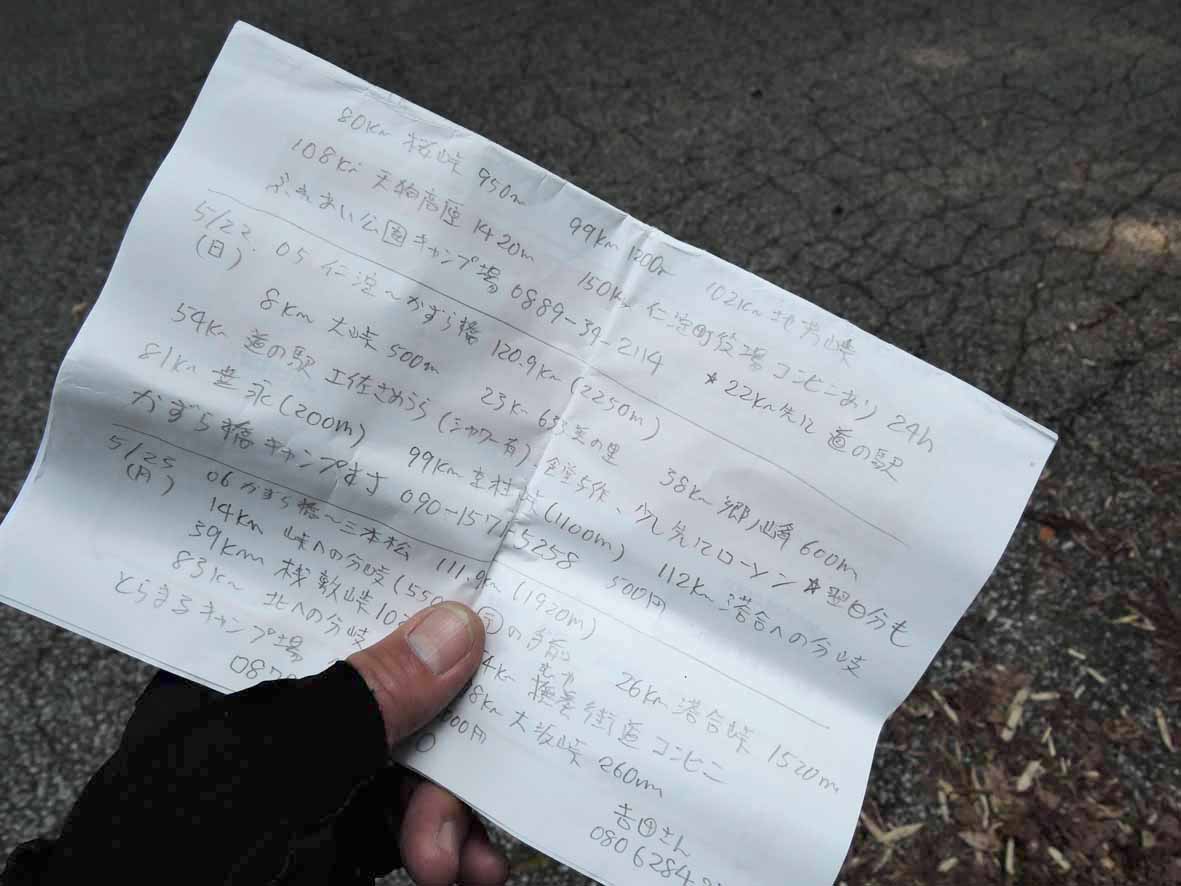 80km 桜峠 950m 99km 1200m 102km 地芳峠
108km 天狗高原 1420m 150km 仁淀町役場 コンビニあり 24h
ふれあい公園キャンプ場 0889-34-2114 ★22km先に道の駅
5/22 (日) 05 仁淀〜かずら橋 120.9km (2250m)
8km 大峠 500m 23km 633美の里 38km 郷ノ峰 600m
54km 道の駅 土佐さめうら (シャワー有) 食堂 、少し先にローソン ★翌日分も
81km 豊永 (200m) 99km 京柱峠 (1100m) 112km 落合への分岐
かずら橋キャンプ 090-1571-5258 500円
5/23 (月) 06 かずら橋〜三本松 111.9km (1920m)
14km 峠への分岐 (550 の手前 26km 落合峠 1520m
39km 桟敷峠 10 4km 撫養街道 コンビニ
83km 北への分岐 8km 大坂峠 260m
とらまるキャンプ場 00円
087 吉田さん
080 6284